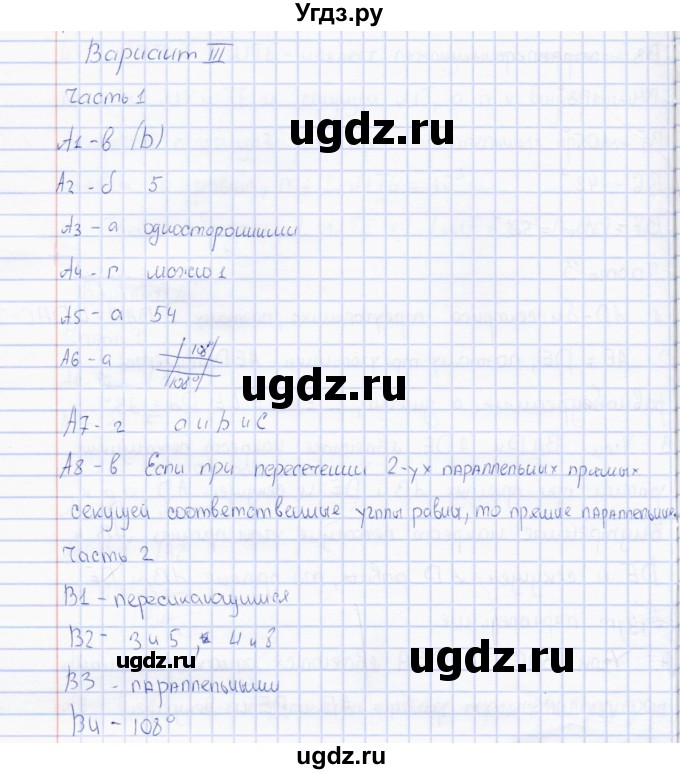 Угдз.ру
Вариант III
Часть 1
ugdz.ru
А1 - в (b)
А2 - б 5
А3 - а односторонними
А4 - г можно 1
А5 - а 54
А6 - а 108°
108°
ugdz.ru
А7 - г а и b и с
А8 - в Если при пересечении 2-ух параллельных прямых
секущей соответственные углы равны, то прямые параллельны.
Часть 2
В1 - пересикающимися
В2 - 3 и 5, 4 и 8
ugdz.ru
ugdz.ru
В3 - параллельными
В4 - 108°
ugdz.ru